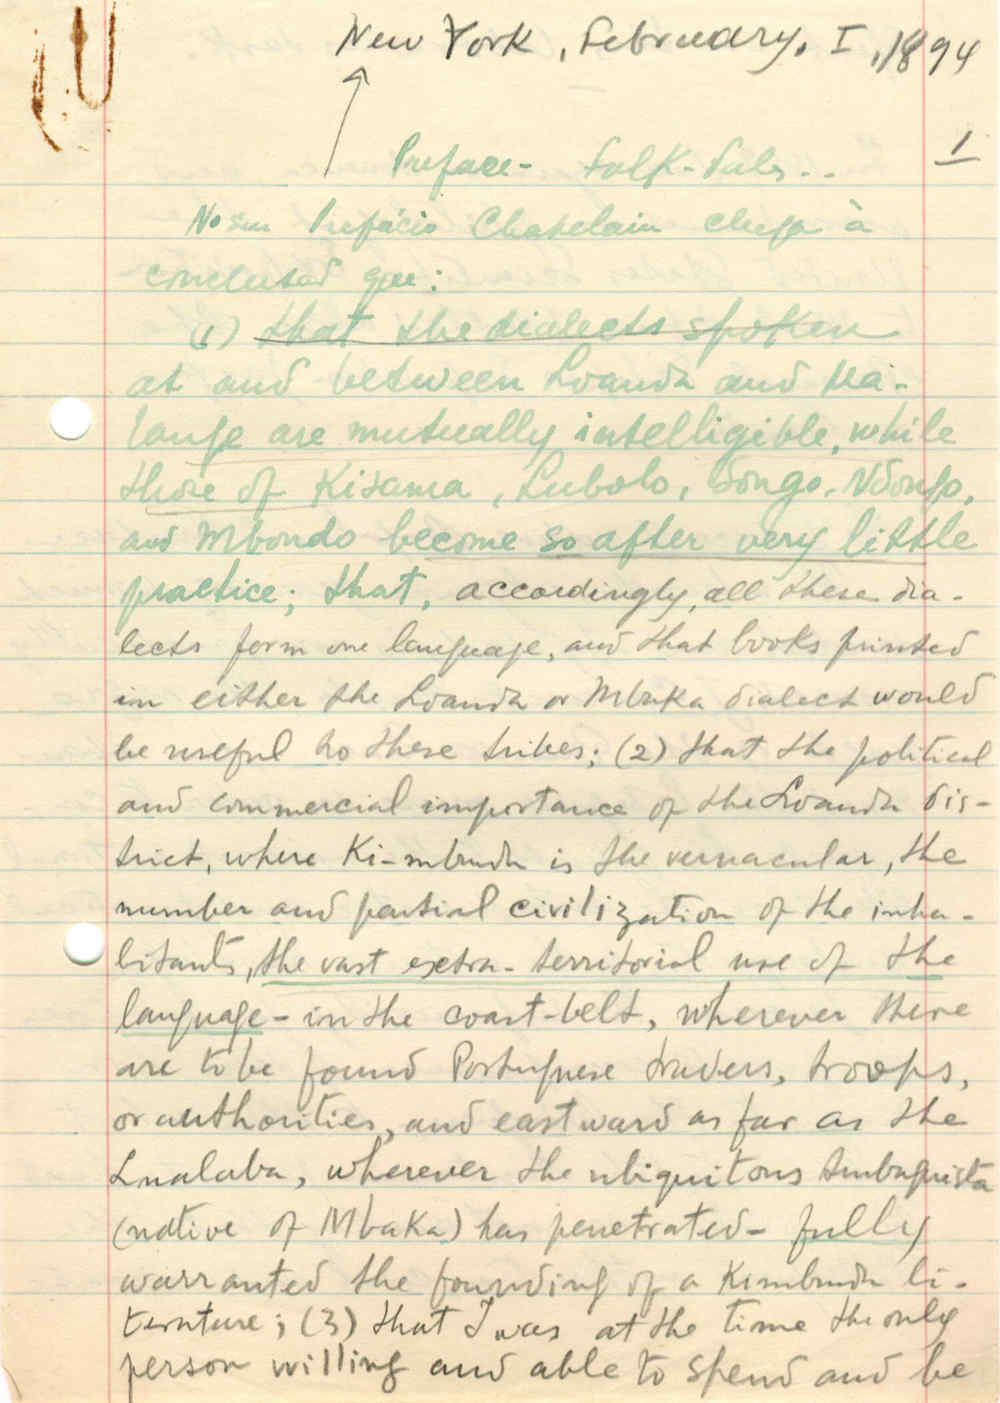 New York, February, I, 1894
1
Preface - Folk-Tales..
No seu Prefácio Chatelain chega à
conclusão que:
(1) that the dialects spoken
at and between Loanda and Ma-
lange are mutually intelligible, while
those of Kisama, Lubolo, Songo, Ndongo,
and Mbondo become so after very little
practice; that, accordingly, all these dia-
lects form one language, and that books printed
in either the Loanda or Mbaka dialect would
be useful to these tribes; (2) that the political
and commercial importance of the Loanda dis-
trict, where Ki-mbundu is the vernacular, the
number and partial civilization of the inha-
bitants, the vast extra-territorial use of the
language - in the coast-belt, wherever there
are to be found Portuguese traders, troops,
or authorities, and eastward as far as the
Lualaba, wherever the ubiquitous Ambaquista
(native of Mbaka) has penetrated - fully
warranted the founding of a Kimbundu li-
terature; (3) that I was at the time the only
person willing and able to spend and be